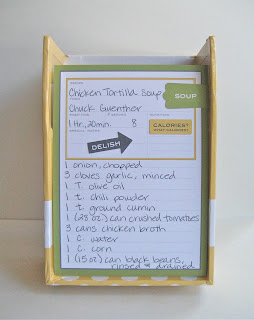 Chicken Tortilla Soup
SOUP
Chuck Guenther
1 Hr, 20min. 8
CALORIES?
WHAT CALORIES?
DELISH
1 onion, chopped
3 cloves garlic, minced
1 T. olive oil
1 t. chili powder
1 t. ground cumin
1 (28 oz) can crushed tomatoes
3 cans chicken broth
1 C. water
1 C. corn
1 (15 oz) can black beans,
rinsed & drained